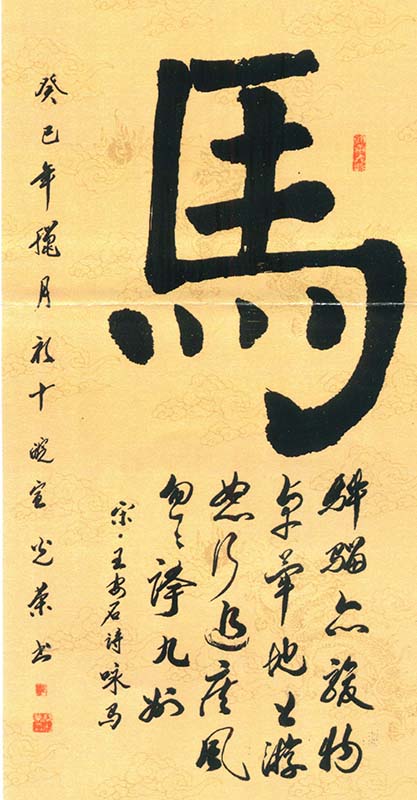 馬
骅骝亦骏物
卓荦地上游
怒行追疾風
忽忽跨九州
宋·王安石诗咏马
癸巳年臘月初十皖宣光荣书